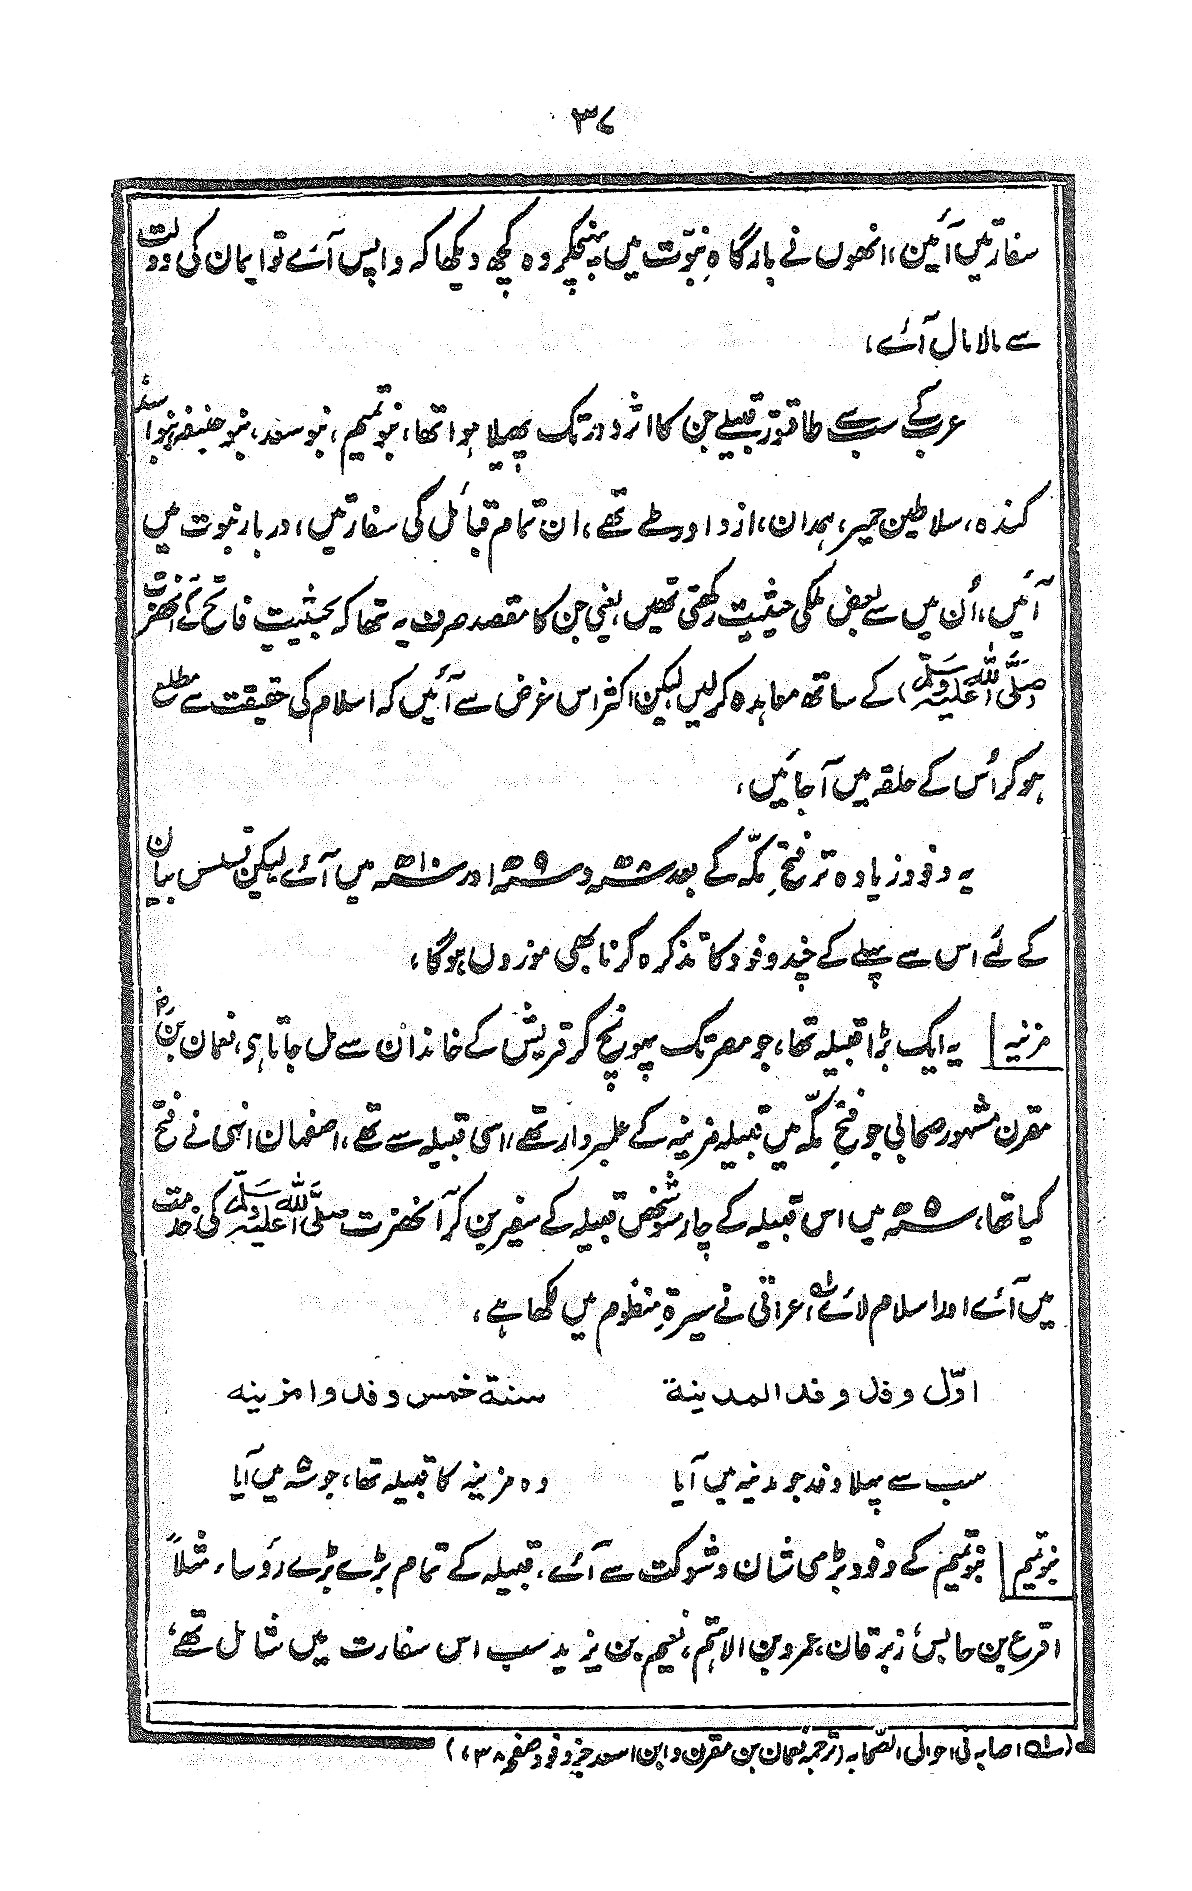 ۳۷
سفارتیں آئین، انھوں نے بارگاہِ نبوّت میں پہنچکر وہ کچھ دیکھا کہ واپس آئے تو ایمان کی دولت
سے مالا مال آئے،
عرب کے سب سے طاقتور قبیلے جن کا اثر دور تک پھیلا ہوا تھا، بنو تمیم، بنو سعد، بنو حنیفہ، بنو اسد
کندہ، سلاطین حمیر، ہمدان، ازد اور طے تھے، ان تمام قبائل کی سفارتیں، دربار نبوت میں
آئیں، اُن میں سے بعض ملکی حیثیت رکھتی تھیں، یعنی جن کا مقصد صرف یہ تھا کہ بحیثیت فاتح کے آنحضرت
(صلَّی اللہ علیہ وسلَّم) کے ساتھ معاہدہ کر لیں لیکن اکثر اس غرض سے آئیں کہ اسلام کی حقیقت سے مطلع
ہو کر اُس کے حلقہ میں آجائیں،
یہ وفود زیادہ تر فتحِ مکّہ کے بعد سنہ ۸ و سنہ ۹ اور سنہ ۱۰ میں آئے لیکن تسلسل بیان
کے لئے اس سے پہلے کے چند وفود کا تذکرہ کرنا بھی موزوں ہو گا،
مزنیہ یہ ایک بڑا قبیلہ تھا، جو مضر تک پہونچ کر قریش کے خاندان سے مل جاتا ہی، نعمان بنؓ
مقرن مشہور صحابی جو فتحِ مکّہ میں قبیلہ مزینہ کے علمبردار تھے، اسی قبیلہ سے تھے، اصفہان انہی نے فتح
کیا تھا، سنہ ۵ میں اس قبیلہ کے چار سو شخص قبیلہ کے سفیر بن کر آنحضرت صلَّی اللہ علیہ وسلَّم کی خدمت
میں آئے اور اسلام لائے ۱ عراقی نے سیرۃِ منظوم میں لکھا ہے،
اوّل وفد وفد المدینۃ سنۃ خمس وفدوا مزینہ
سب سے پہلا وفد جو مدینہ میں آیا وہ مزینہ کا قبیلہ تھا، جو سنہ ۵ میں آیا
بنو تمیم بنو تمیم کے وفود بڑی شان و شوکت سے آئے، قبیلہ کے تمام بڑے بڑے رؤسا، مثلاً
اقرع بن حابس، زبرقان، عمرو بن الاہتم، نعیم بن یزید سب اس سفارت میں شامل تھے،
(۱ اصابہ فی احوال الصّحابہ (ترجمہ نعمان بن مقرن و ابن سعد جزو وفود صفحہ ۳۸،)